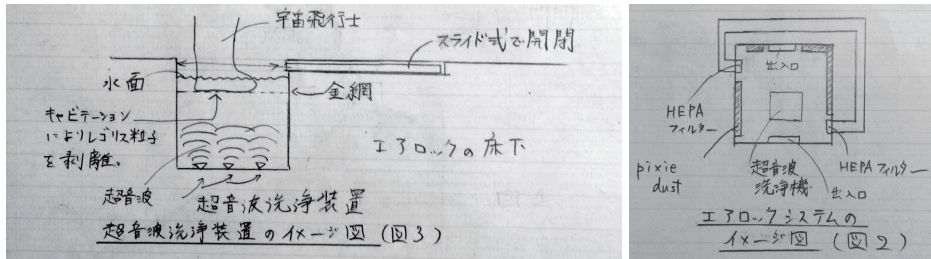 宇宙飛行士
スライド式で開閉
水面
金網
キャビテーション
によりレゴリス粒子
を剥離。
エアロックの床下
超音波
超音波洗浄装置
超音波洗浄装置のイメージ図(図3)
出入口
HEPA
フィルター
pixie
dust
超音波
洗浄機
HEPAフィルター
出入口
エアロックシステムの
イメージ図 (図2)